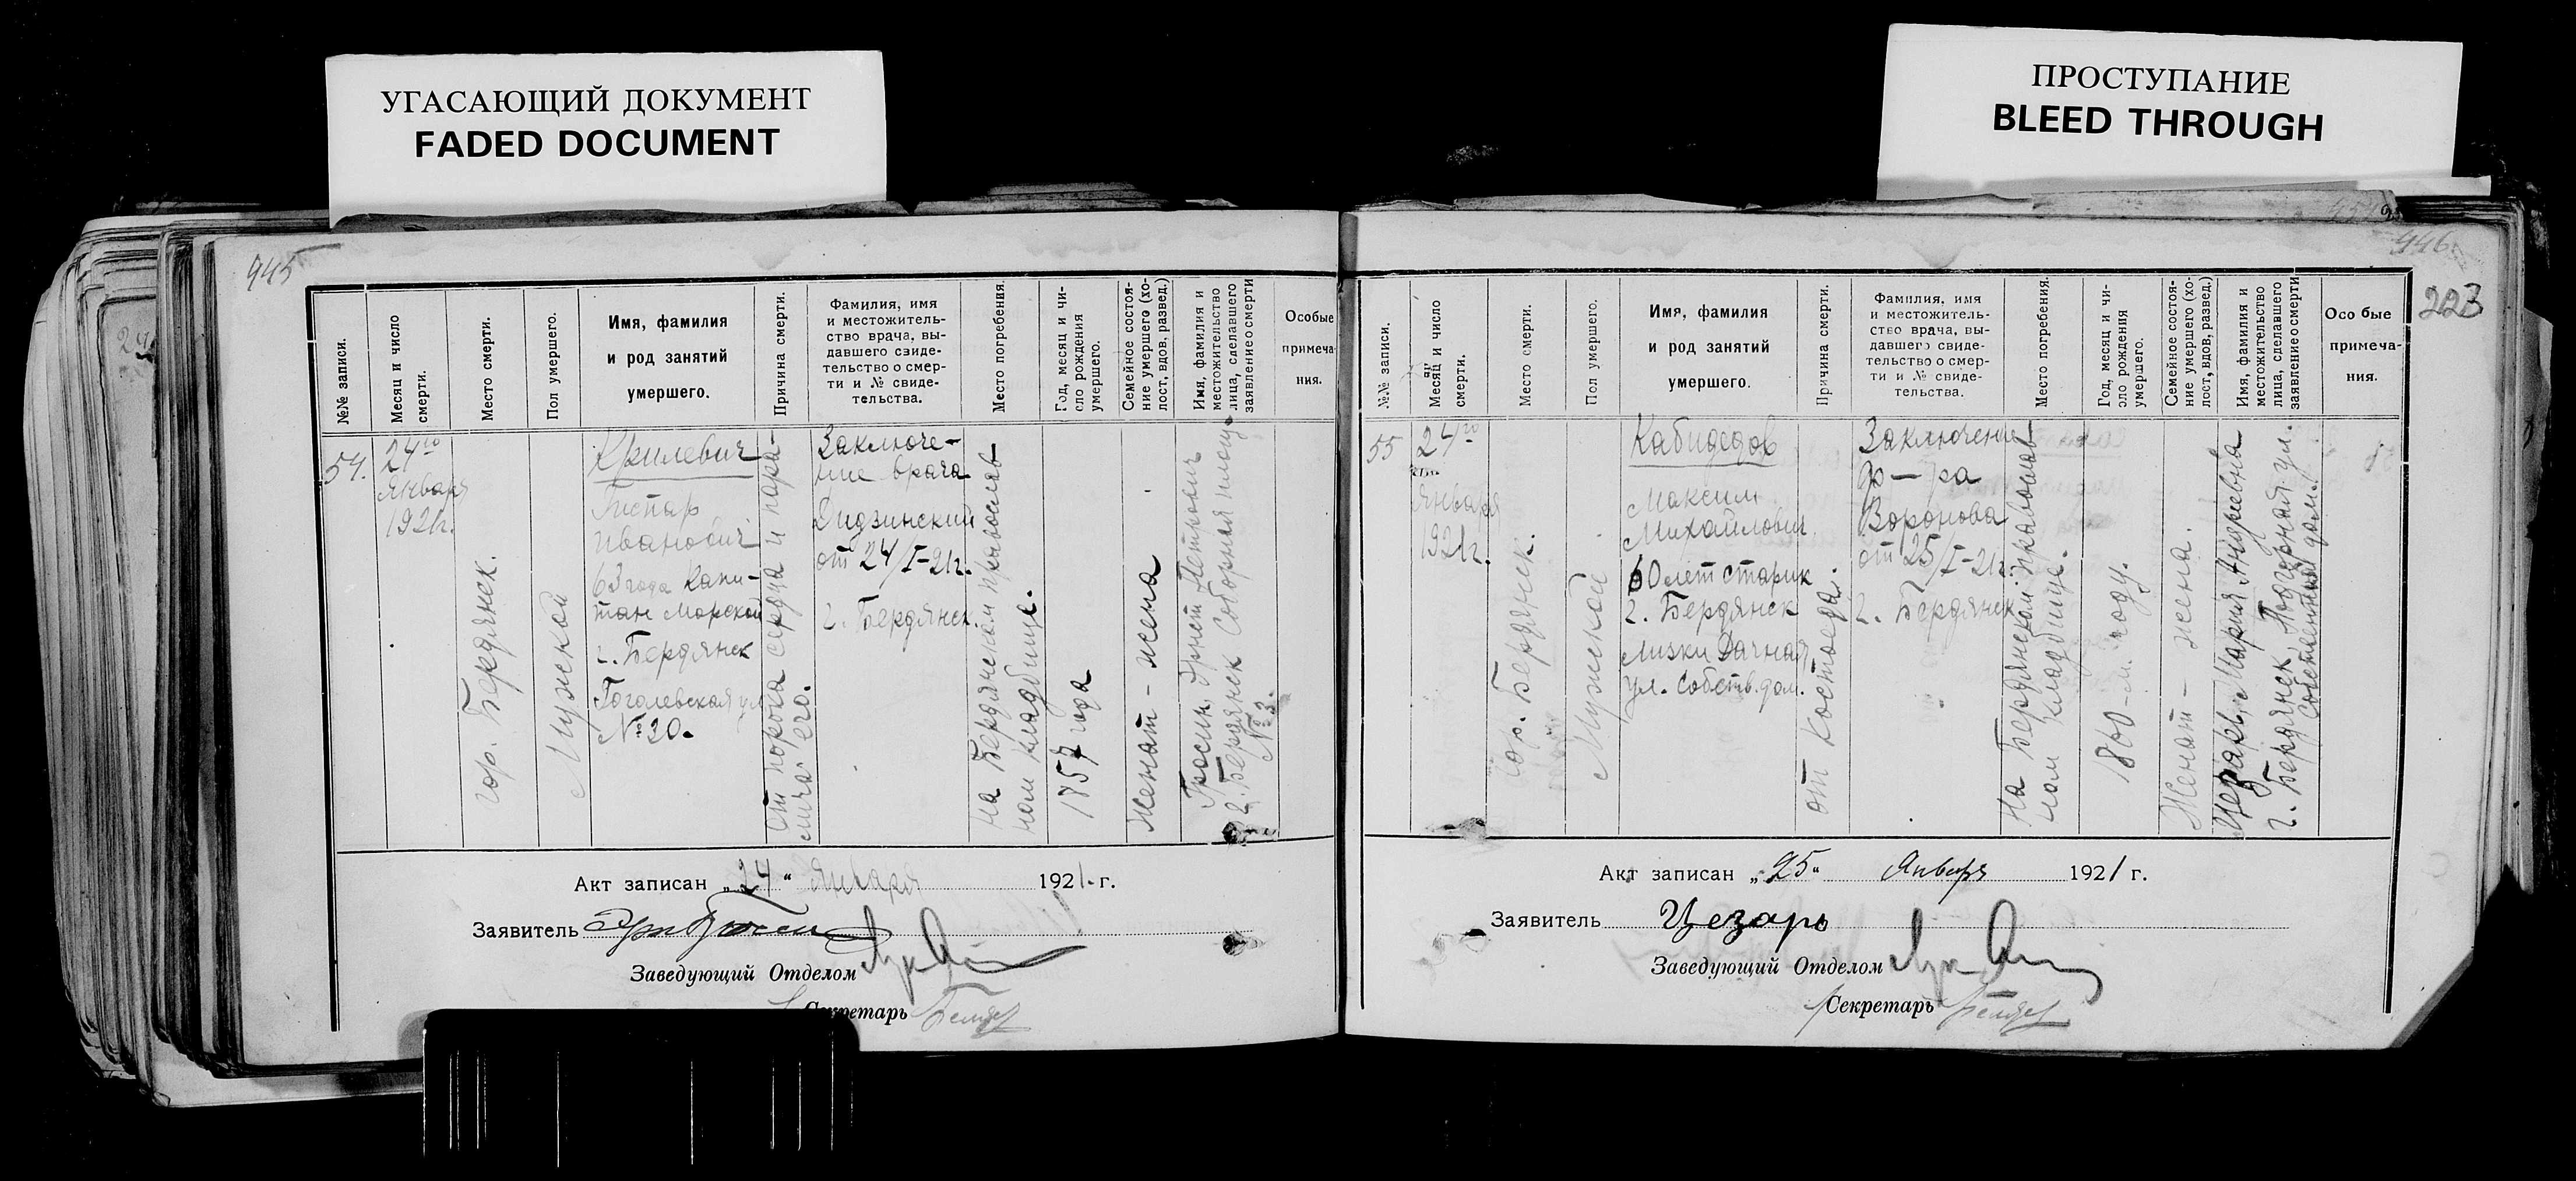 УГАСАЮЩИЙ ДОКУМЕНТ
FADED DOCUMENT
ПРОСТУПАНИЕ
BLEED THROUGH
945
№№ записи.
Месяц и число
смерти.
Место смерти.
Пол умершего.
Имя, фамилия
и род занятий
умершего.
Причина смерти.
Фамилия, имя
и местожитель-
ство врача, вы-
давшего свиде-
тельство о смер-
ти и № свиде-
тельства.
Место погребения.
Год, месяц и чи-
сло рождения
умершего.
Семейное состоя-
ние умершего (хо-
лост, вдов, развед.)
Имя, фамилия и
местожительство
лица, сделавшего
заявление о смерти
Особые
примеча-
ния.
54.
24го
Января
1921г.
гор. Бердянск.
Мужской
Крилевич
Иванович
63 года Капи-
тан Морской
г. Бердянск
Гоголевская ул
№ 20.
От порока сердца и пара-
лича его.
Заключе-
ние врача
Дидзинский
от 24/I-21г.
г. Бердянск.
На Бердянском православ-
ном кладбище.
1857 года
Женат - жена
Эрнст Петрович
г. Бердянск Соборная площ.
№ 3.
Акт записан „24“ января 1921. г.
Заявитель
Заведующий Отделом
Секретарь
446
223
№№ записи.
Месяц и число
смерти.
Место смерти.
Пол умершего.
Имя, фамилия
и род занятий
умершего.
Причина смерти.
Фамилия, имя
и местожитель-
ство врача, вы-
давшего свиде-
тельство о смер-
ти и № свиде-
тельства.
Место погребения.
Год, месяц и чи-
сло рождения
умершего.
Семейное состоя-
ние умершего (хо-
лост, вдов, развед.)
Имя, фамилия и
местожительство
лица, сделавшего
заявление о смерти
Осо бые
примеча-
ния.
55
24го
Января
1921г.
гор. Бердянск.
Мужской
Кабидедов
Максим
Михайлович
60 лет старик
г. Бердянск
Лизки Дачная
ул. Собств. дом.
от Костоеда.
Заключение
д-ра
Воронова
от 25/I-21г.
г. Бердянск
На Бердянском православ-
ном кладбище.
1860-м году.
Женат - жена.
Цезарь Мария Андреевна
г. Бердянск, Нагорная ул.
Собственный дом.
Акт записан „25“ Января 1921 г.
Заявитель Цезарь
Заведующий Отделом
Секретарь